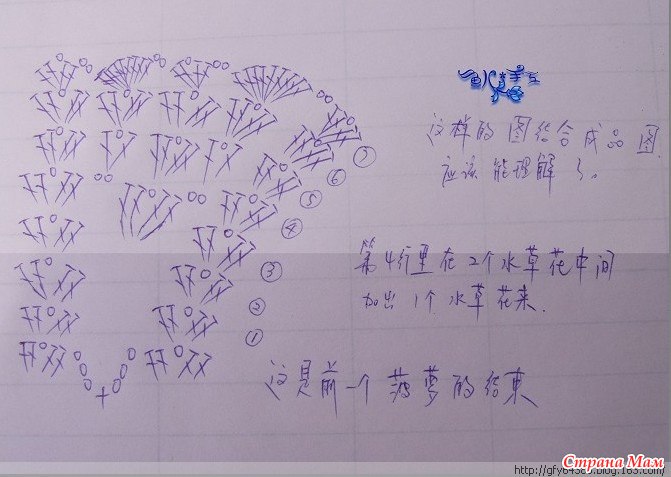 这样的图结合成品图
应该能理解了。
⑦
⑥
⑤
④
③
②
①
第4行里在2个水草花中间
加出1个水草花来.
这是前一个菠萝的结束
Страна Мам
http://gfy64369.blog.163.com/